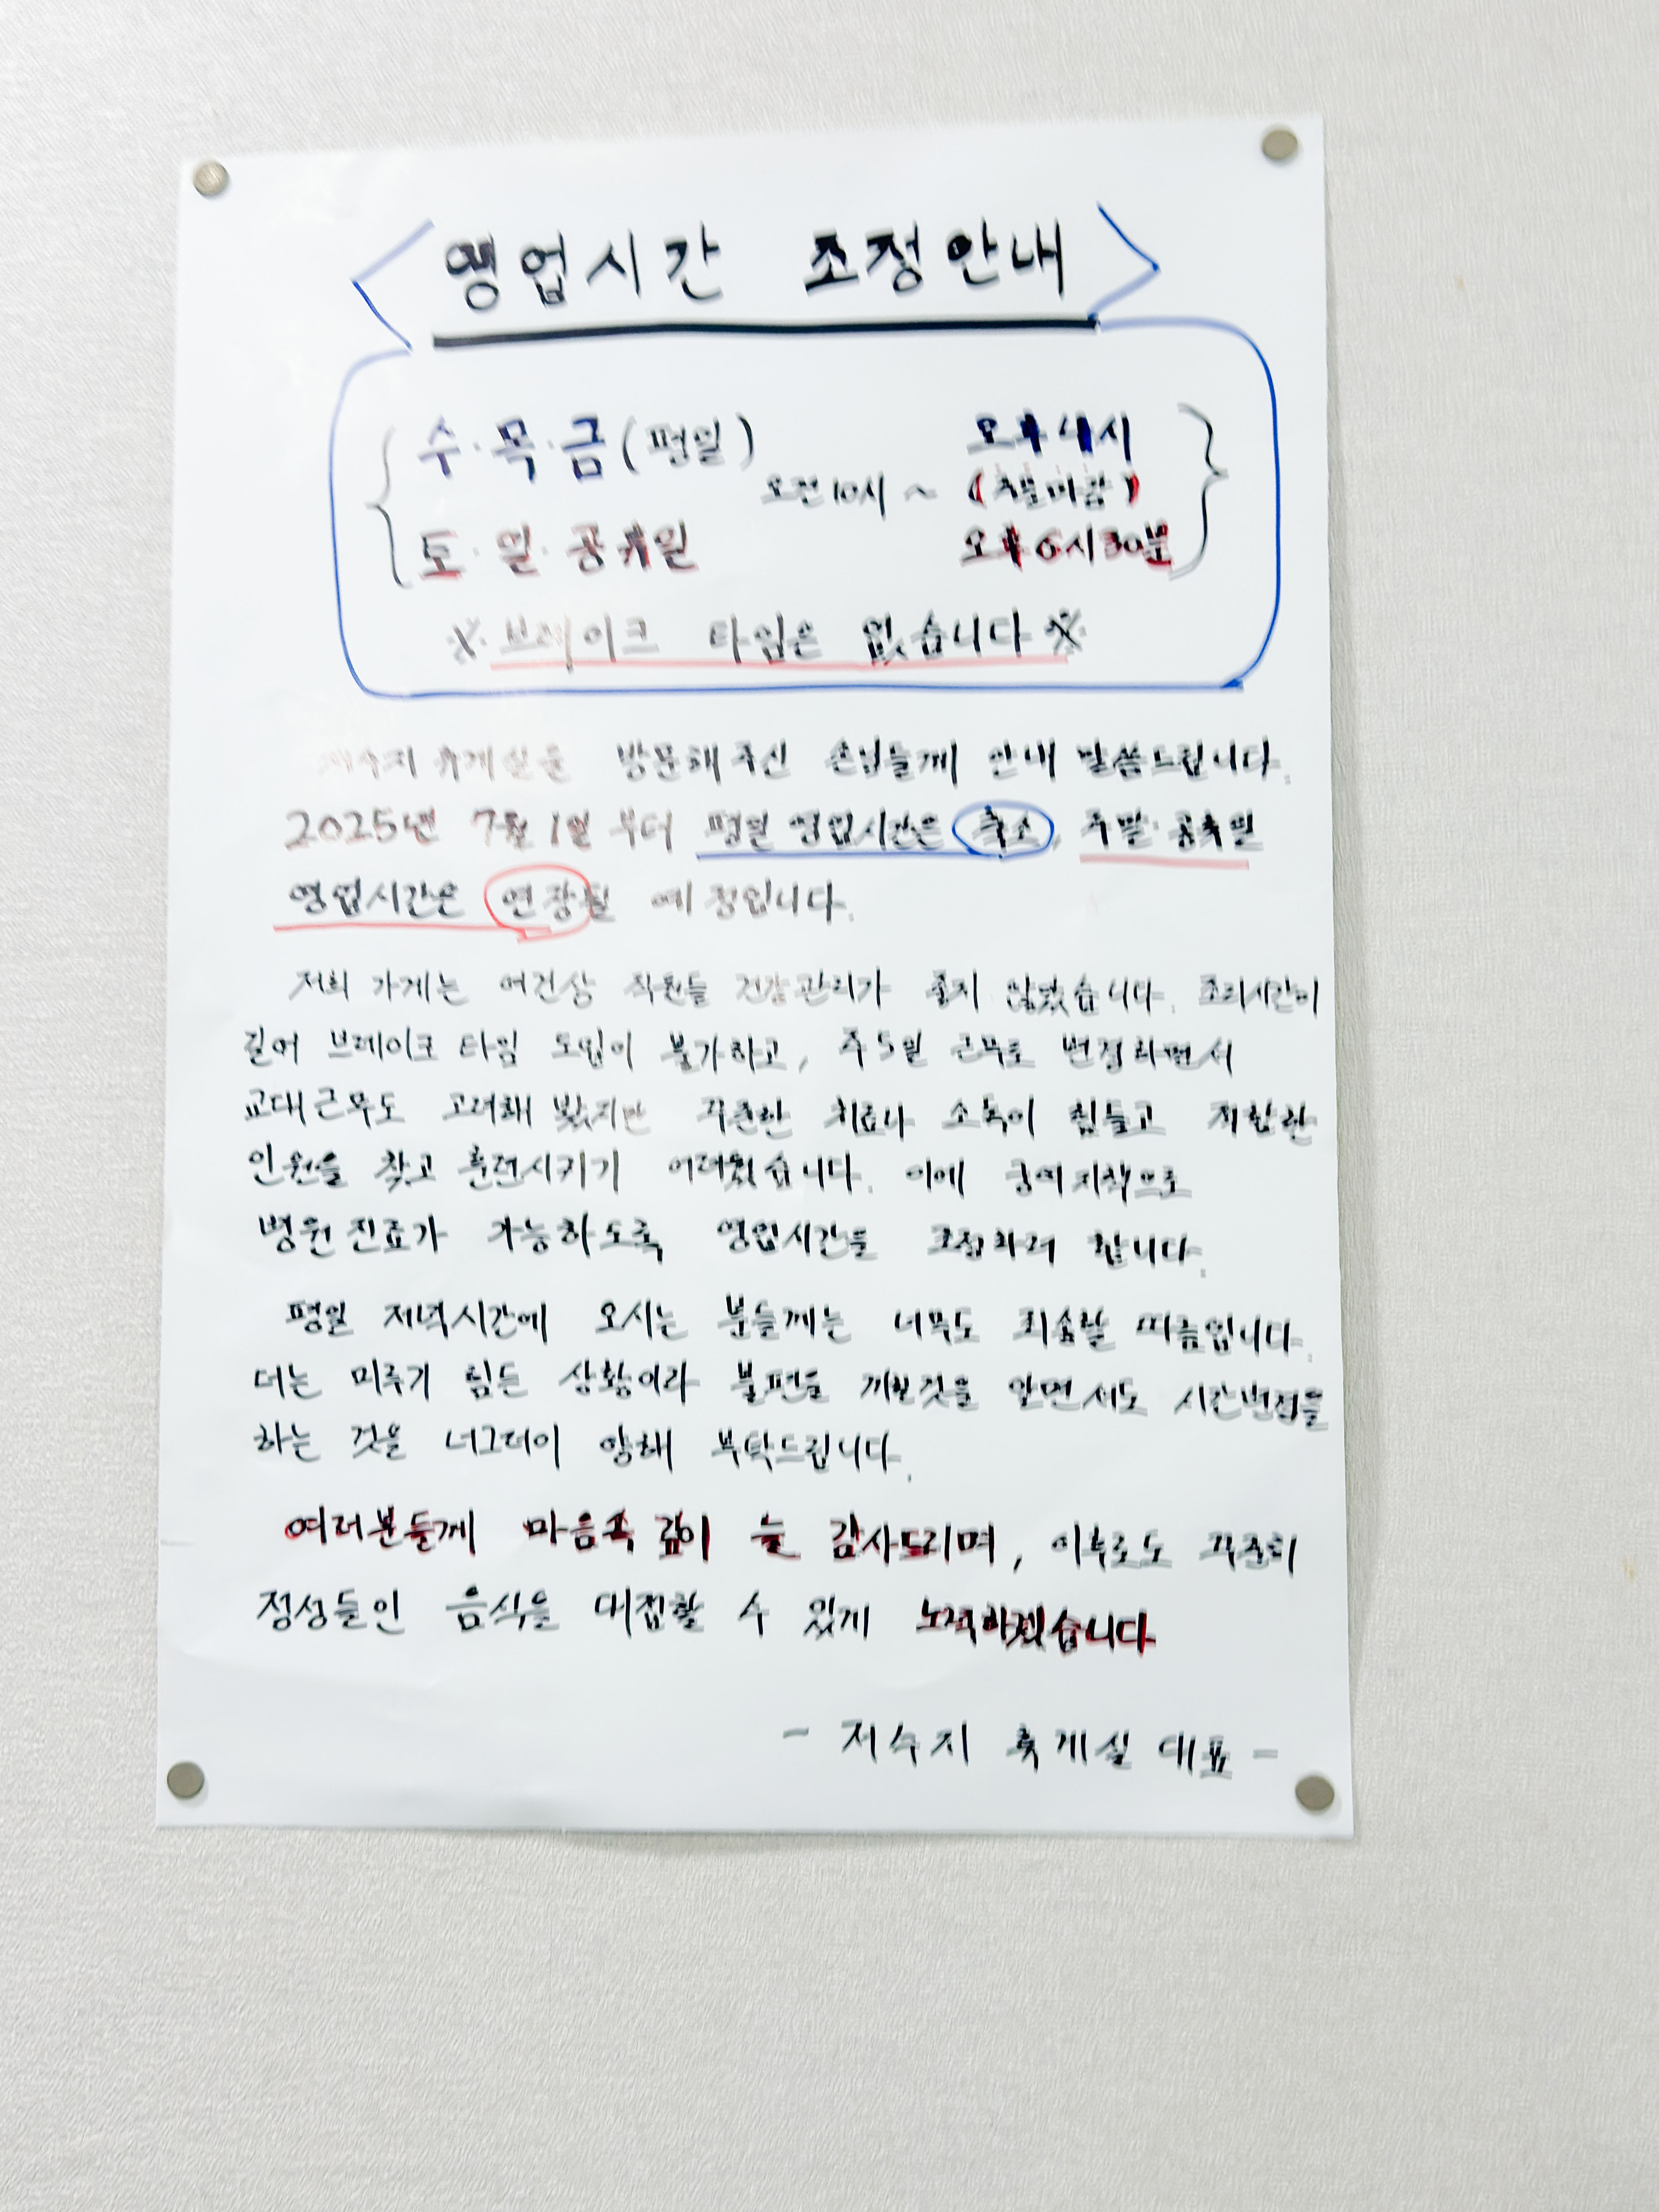 영업시간 조정안내
수·목·금(평일) 오후 4시
오전10시 ~ (주문마감)
토·일·공휴일 오후 6시30분
※브레이크 타임은 없습니다※
저수지 휴게실을 방문해주신 손님들께 안내 말씀드립니다.
2025년 7월 1일 부터 평일 영업시간은 축소, 주말·공휴일
영업시간은 연장될 예정입니다.
저희 가게는 여건상 직원들 건강관리가 좋지 않았습니다. 조리시간이
길어 브레이크 타임 도입이 불가하고, 주5일 근무로 변경하면서
교대근무도 고려해 봤지만 꾸준한 치료나 소득이 힘들고 적합한
인원을 찾고 훈련시키기 어려웠습니다. 이에 궁여지책으로
병원진료가 가능하도록 영업시간을 조정하려 합니다.
평일 저녁시간에 오시는 분들께는 너무도 죄송할 따름입니다.
더는 미루기 힘든 상황이라 불편을 끼칠것을 알면서도 시간변경을
하는 것을 너그러이 양해 부탁드립니다.
여러분들께 마음속 깊이 늘 감사드리며, 이후로도 꾸준히
정성들인 음식을 대접할 수 있게 노력하겠습니다
- 저수지 휴게실 대표 -